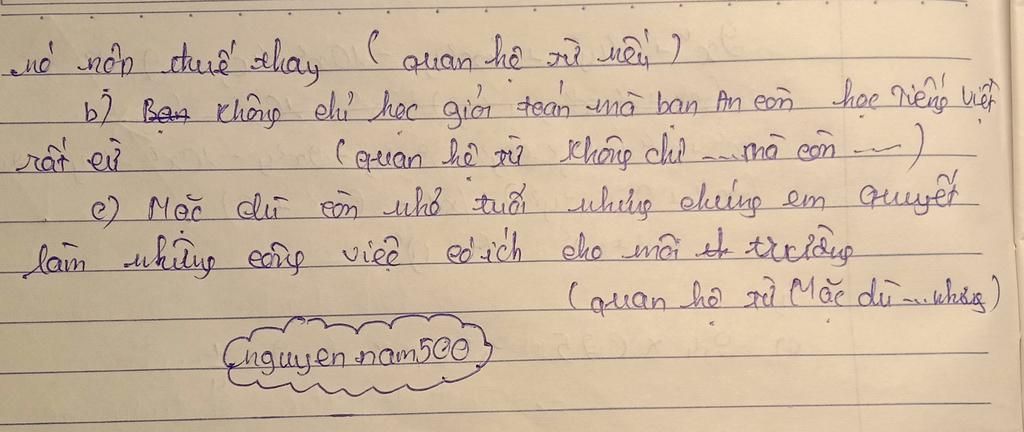 nó nôp thuế thay (quan hệ từ nếu)
b) Không chỉ học giỏi toán mà bạn An còn học Tiếng Việt
rất cừ (quan hệ từ Không chỉ ... mà còn ...)
c) Mặc dù còn nhỏ tuổi nhưng chúng em quyết
làm những công việc có ích cho môi trường
(quan hệ từ Mặc dù ... nhưng)
nguyennam500